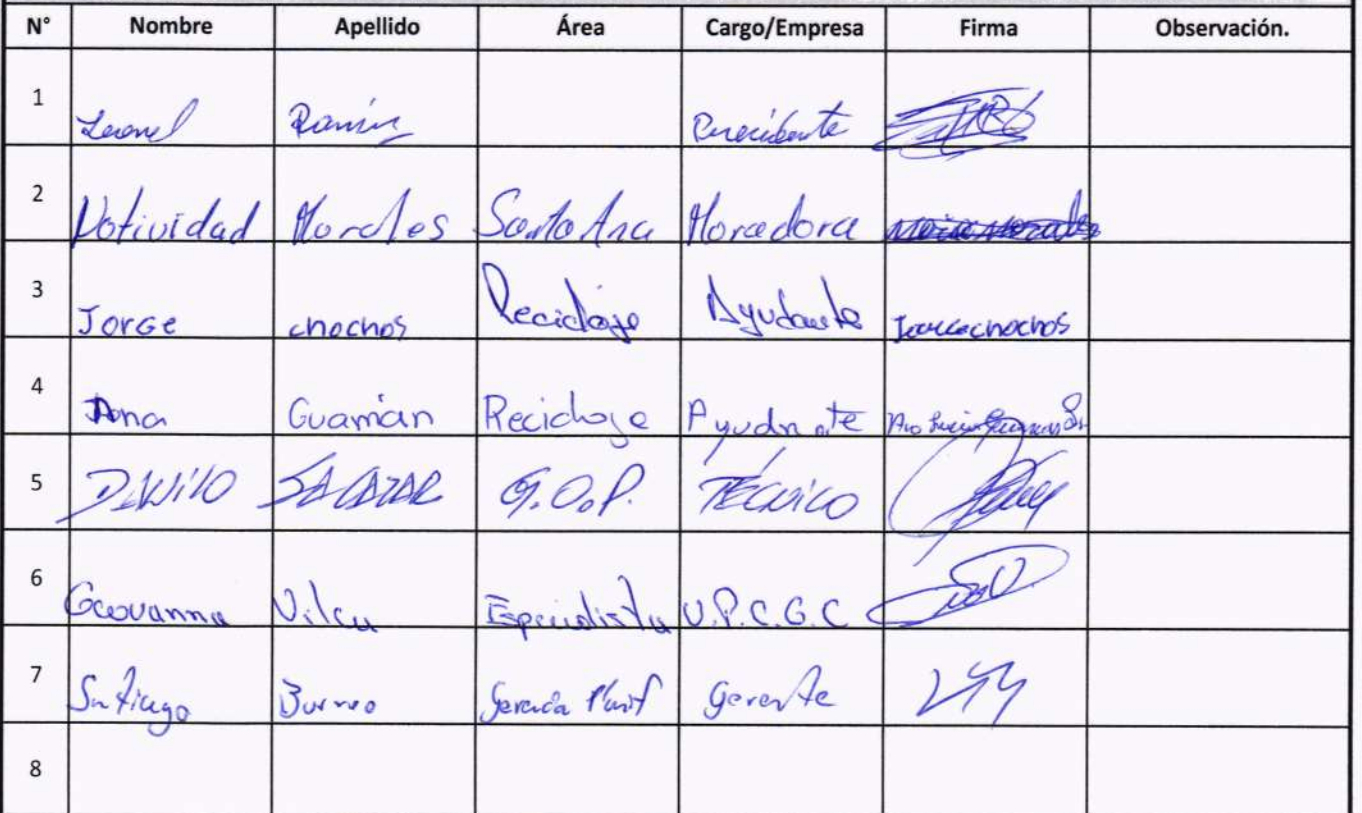 N° Nombre Apellido Área Cargo/Empresa Firma Observación.
1 Leonel
2 Natividad Morales Santa Ana Moradora
3 Jorge chochos Reciclaje Ayudante
4 Ana Guamán Reciclaje Ayudante
5 DANILO SALAZAR G.O.P. TÉCNICO
6 Geovanna Vilca Especialista U.P.C.G.C
7 Santiago Burneo Gerencia Planif Gerente
8